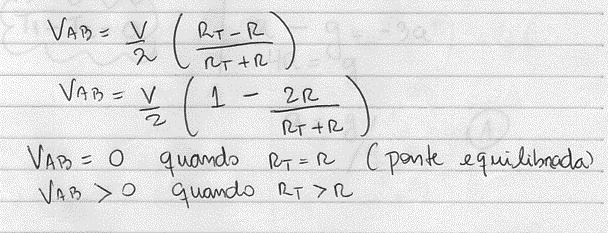 VAB = V/2 ( RT - R / RT + R )
VAB = V/2 ( 1 - 2R / RT + R )
VAB = 0 quando RT = R (ponte equilibrada)
VAB > 0 quando RT > R